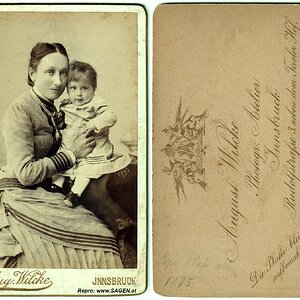 Aug. Wilcke
INNSBRUCK
Repro: www.SAGEN.at
August Wilcke
Photogr. Atelier
Innsbruck
Rudolfstraße 3, nebenan Tiroler Hof
Die Platte bleibt
aufbewahrt
1885